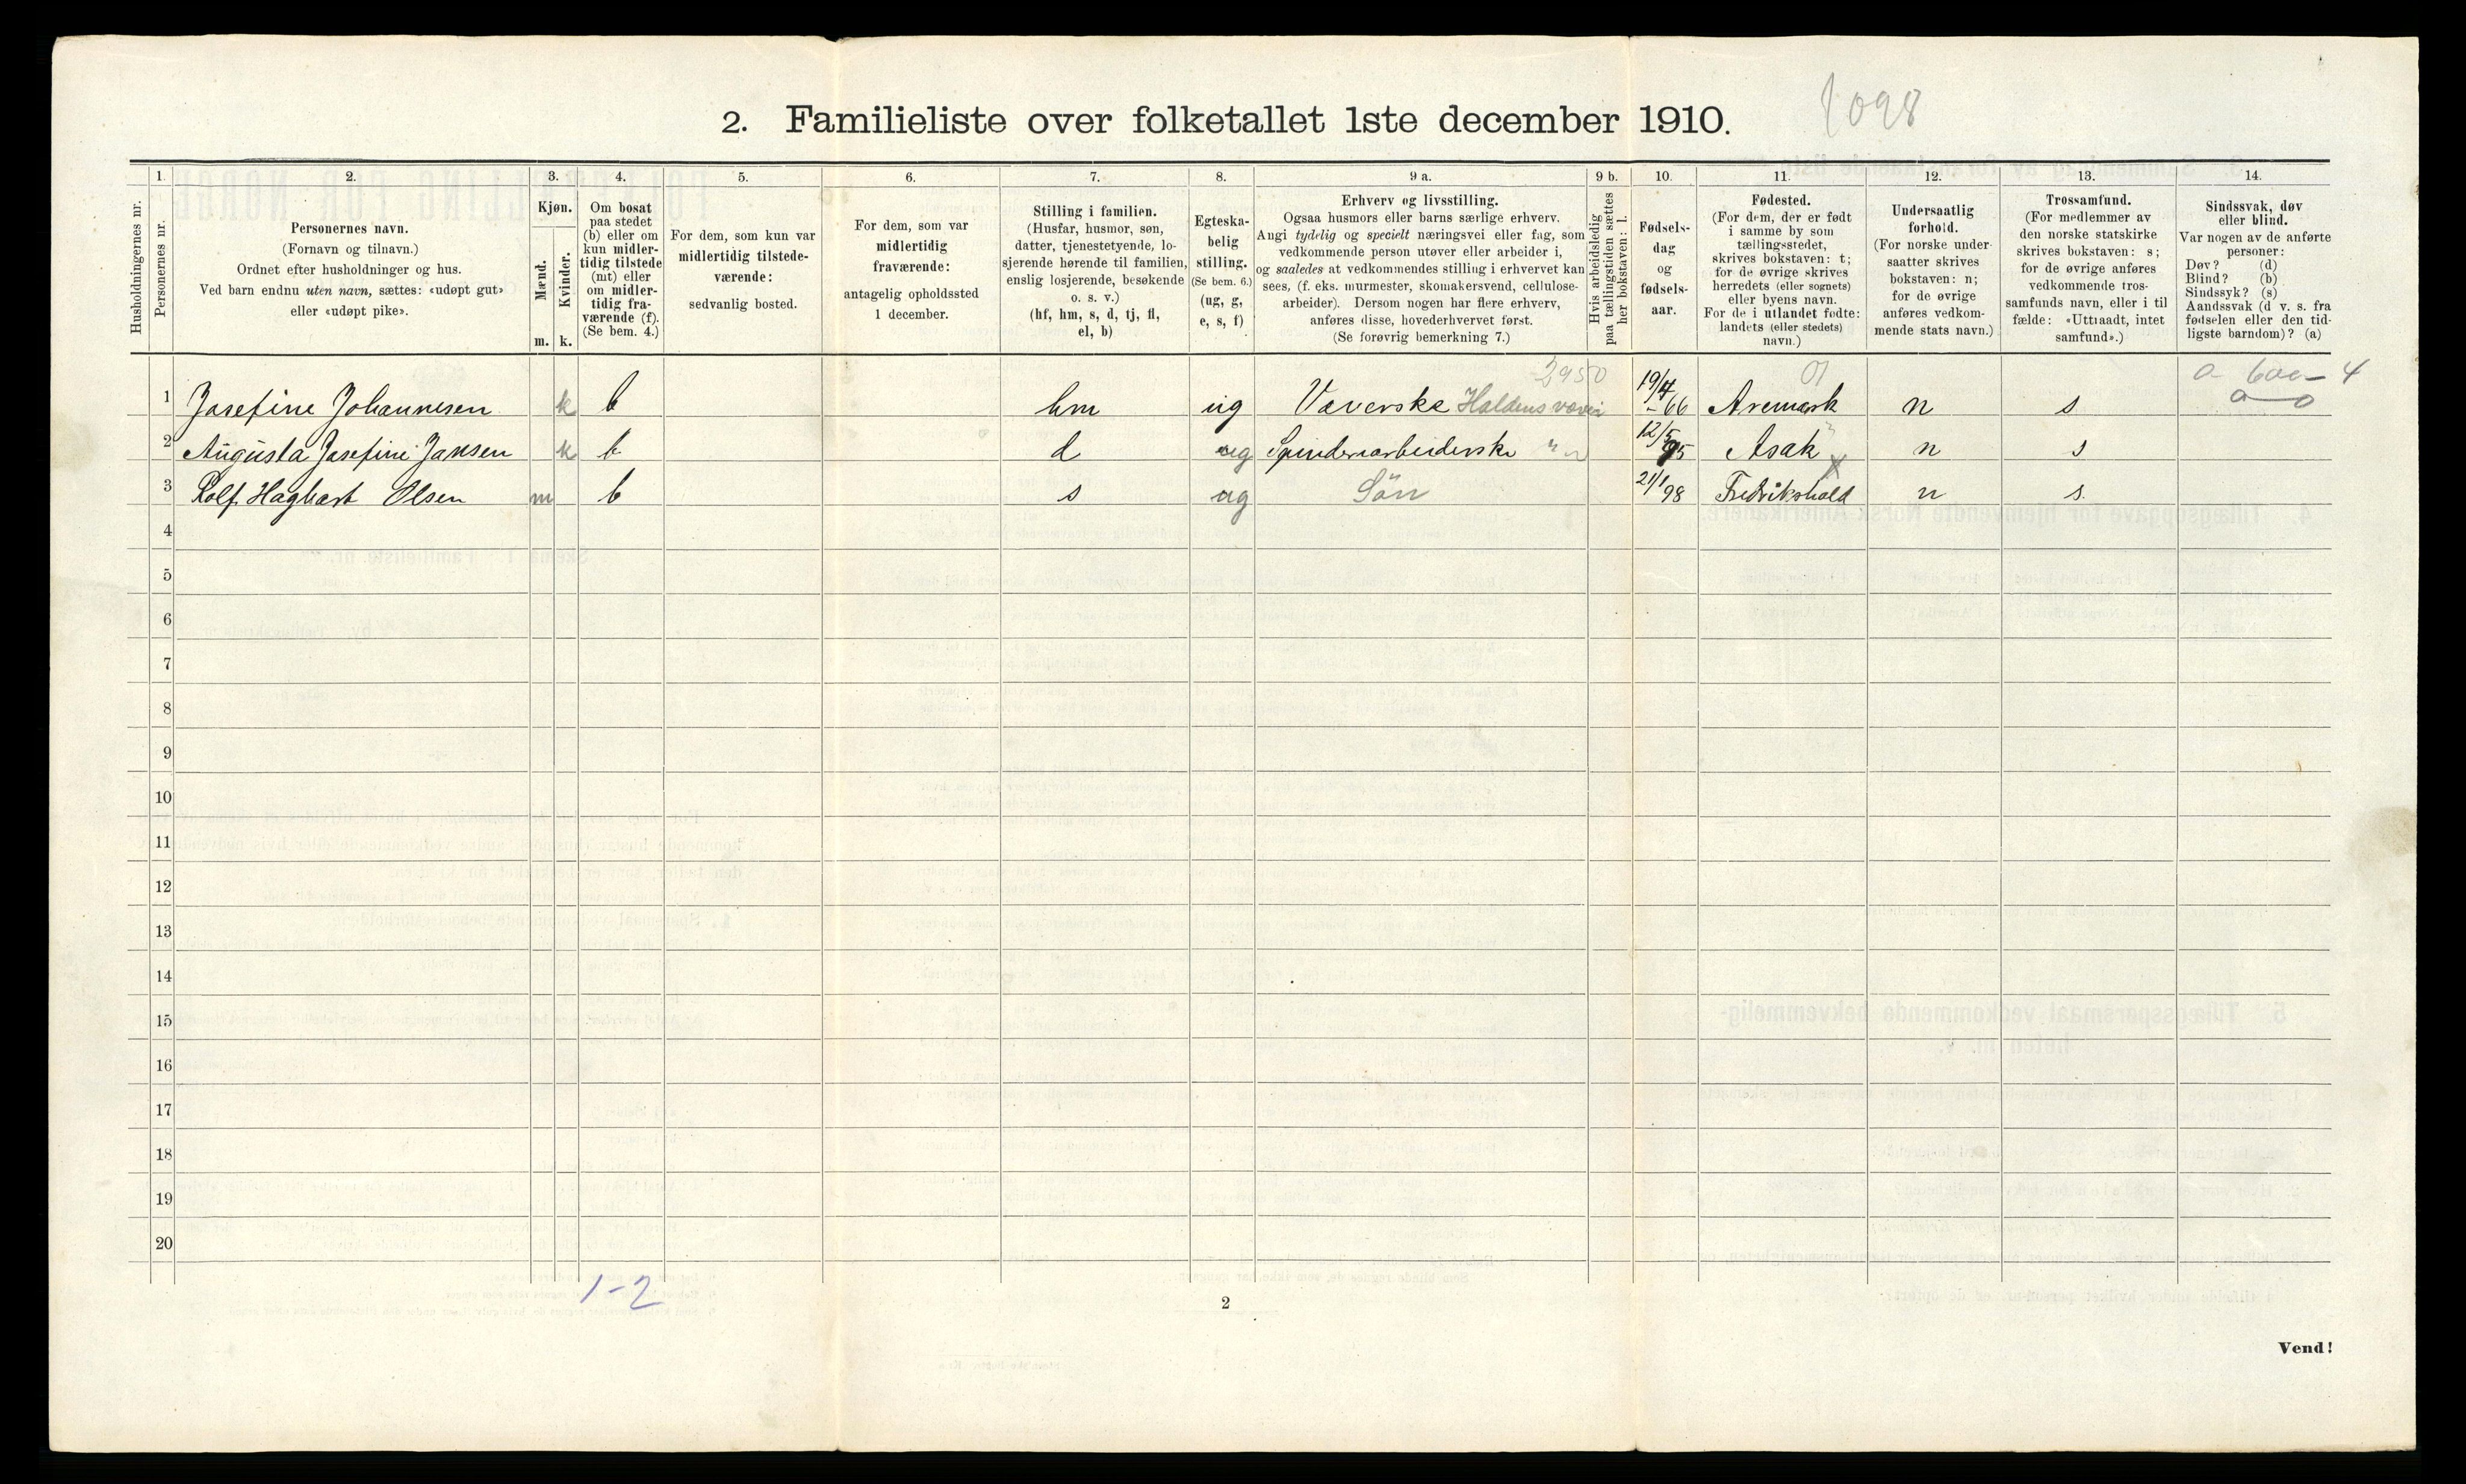 2. Familieliste over folketallet 1ste december 1910.
1. 2. 3. 4. 5. 6. 7. 8. 9 a. 9 b. 10. 11. 12. 13. 14.
Husholdningernes nr.
Personernes nr.
Personernes navn.
(Fornavn og tilnavn.)
Ordnet efter husholdninger og hus.
Ved barn endnu uten navn, sættes: «udøpt gut»
eller «udøpt pike».
Kjøn.
Mænd.
Kvinder.
m. k.
Om bosat
paa stedet
(b) eller om
kun midler-
tidig tilstede
(mt) eller
om midler-
tidig fra-
værende (f).
(Se bem. 4.)
For dem, som kun var
midlertidig tilstede-
værende:
sedvanlig bosted.
For dem, som var
midlertidig
fraværende:
antagelig opholdssted
1 december.
Stilling i familien.
(Husfar, husmor, søn,
datter, tjenestetyende, lo-
sjerende hørende til familien,
enslig losjerende, besøkende
o. s. v.)
(hf, hm, s, d, tj, fl,
el, b)
Egteska-
belig
stilling.
(Se bem. 6.)
(ug, g,
e, s, f)
Erhverv og livsstilling.
Ogsaa husmors eller barns særlige erhverv.
Angi tydelig og specielt næringsvei eller fag, som
vedkommende person utøver eller arbeider i,
og saaledes at vedkommendes stilling i erhvervet kan
sees, (f. eks. murmester, skomakersvend, cellulose-
arbeider). Dersom nogen har flere erhverv,
anføres disse, hovederhvervet først.
(Se forøvrig bemerkning 7.)
Hvis arbeidsledig
paa tællingstiden sættes
her bokstaven: l.
Fødsels-
dag
og
fødsels-
aar.
Fødested.
(For dem, der er født
i samme by som
tællingsstedet,
skrives bokstaven: t;
for de øvrige skrives
herredets (eller sognets)
eller byens navn.
For de i utlandet fødte:
landets (eller stedets)
navn.)
Undersaatlig
forhold.
(For norske under-
saatter skrives
bokstaven: n;
for de øvrige
anføres vedkom-
mende stats navn.)
Trossamfund.
(For medlemmer av
den norske statskirke
skrives bokstaven: s;
for de øvrige anføres
vedkommende tros-
samfunds navn, eller i til-
fælde: «Uttraadt, intet
samfund».)
Sindssvak, døv
eller blind.
Var nogen av de anførte
personer:
Døv? (d)
Blind? (b)
Sindssyk? (s)
Aandssvak (d v. s. fra
fødselen eller den tid-
ligste barndom)? (a)
2950
1 Josefine Johannesen k b hm ug Væverske Haldens væveri 19/4 -66 Aremark n s
2 Augusta Josefine Jansen k b d ug Spinderiarbeiderske 12/5 95 Asak n s
3 Rolf Hagbart Olsen m b s ug Sön 21/1 98 Fredrikshald n s.
4
5
6
7
8
9
10
11
12
13
14
15
16
17
18
19
20
1-2
2
Vend!